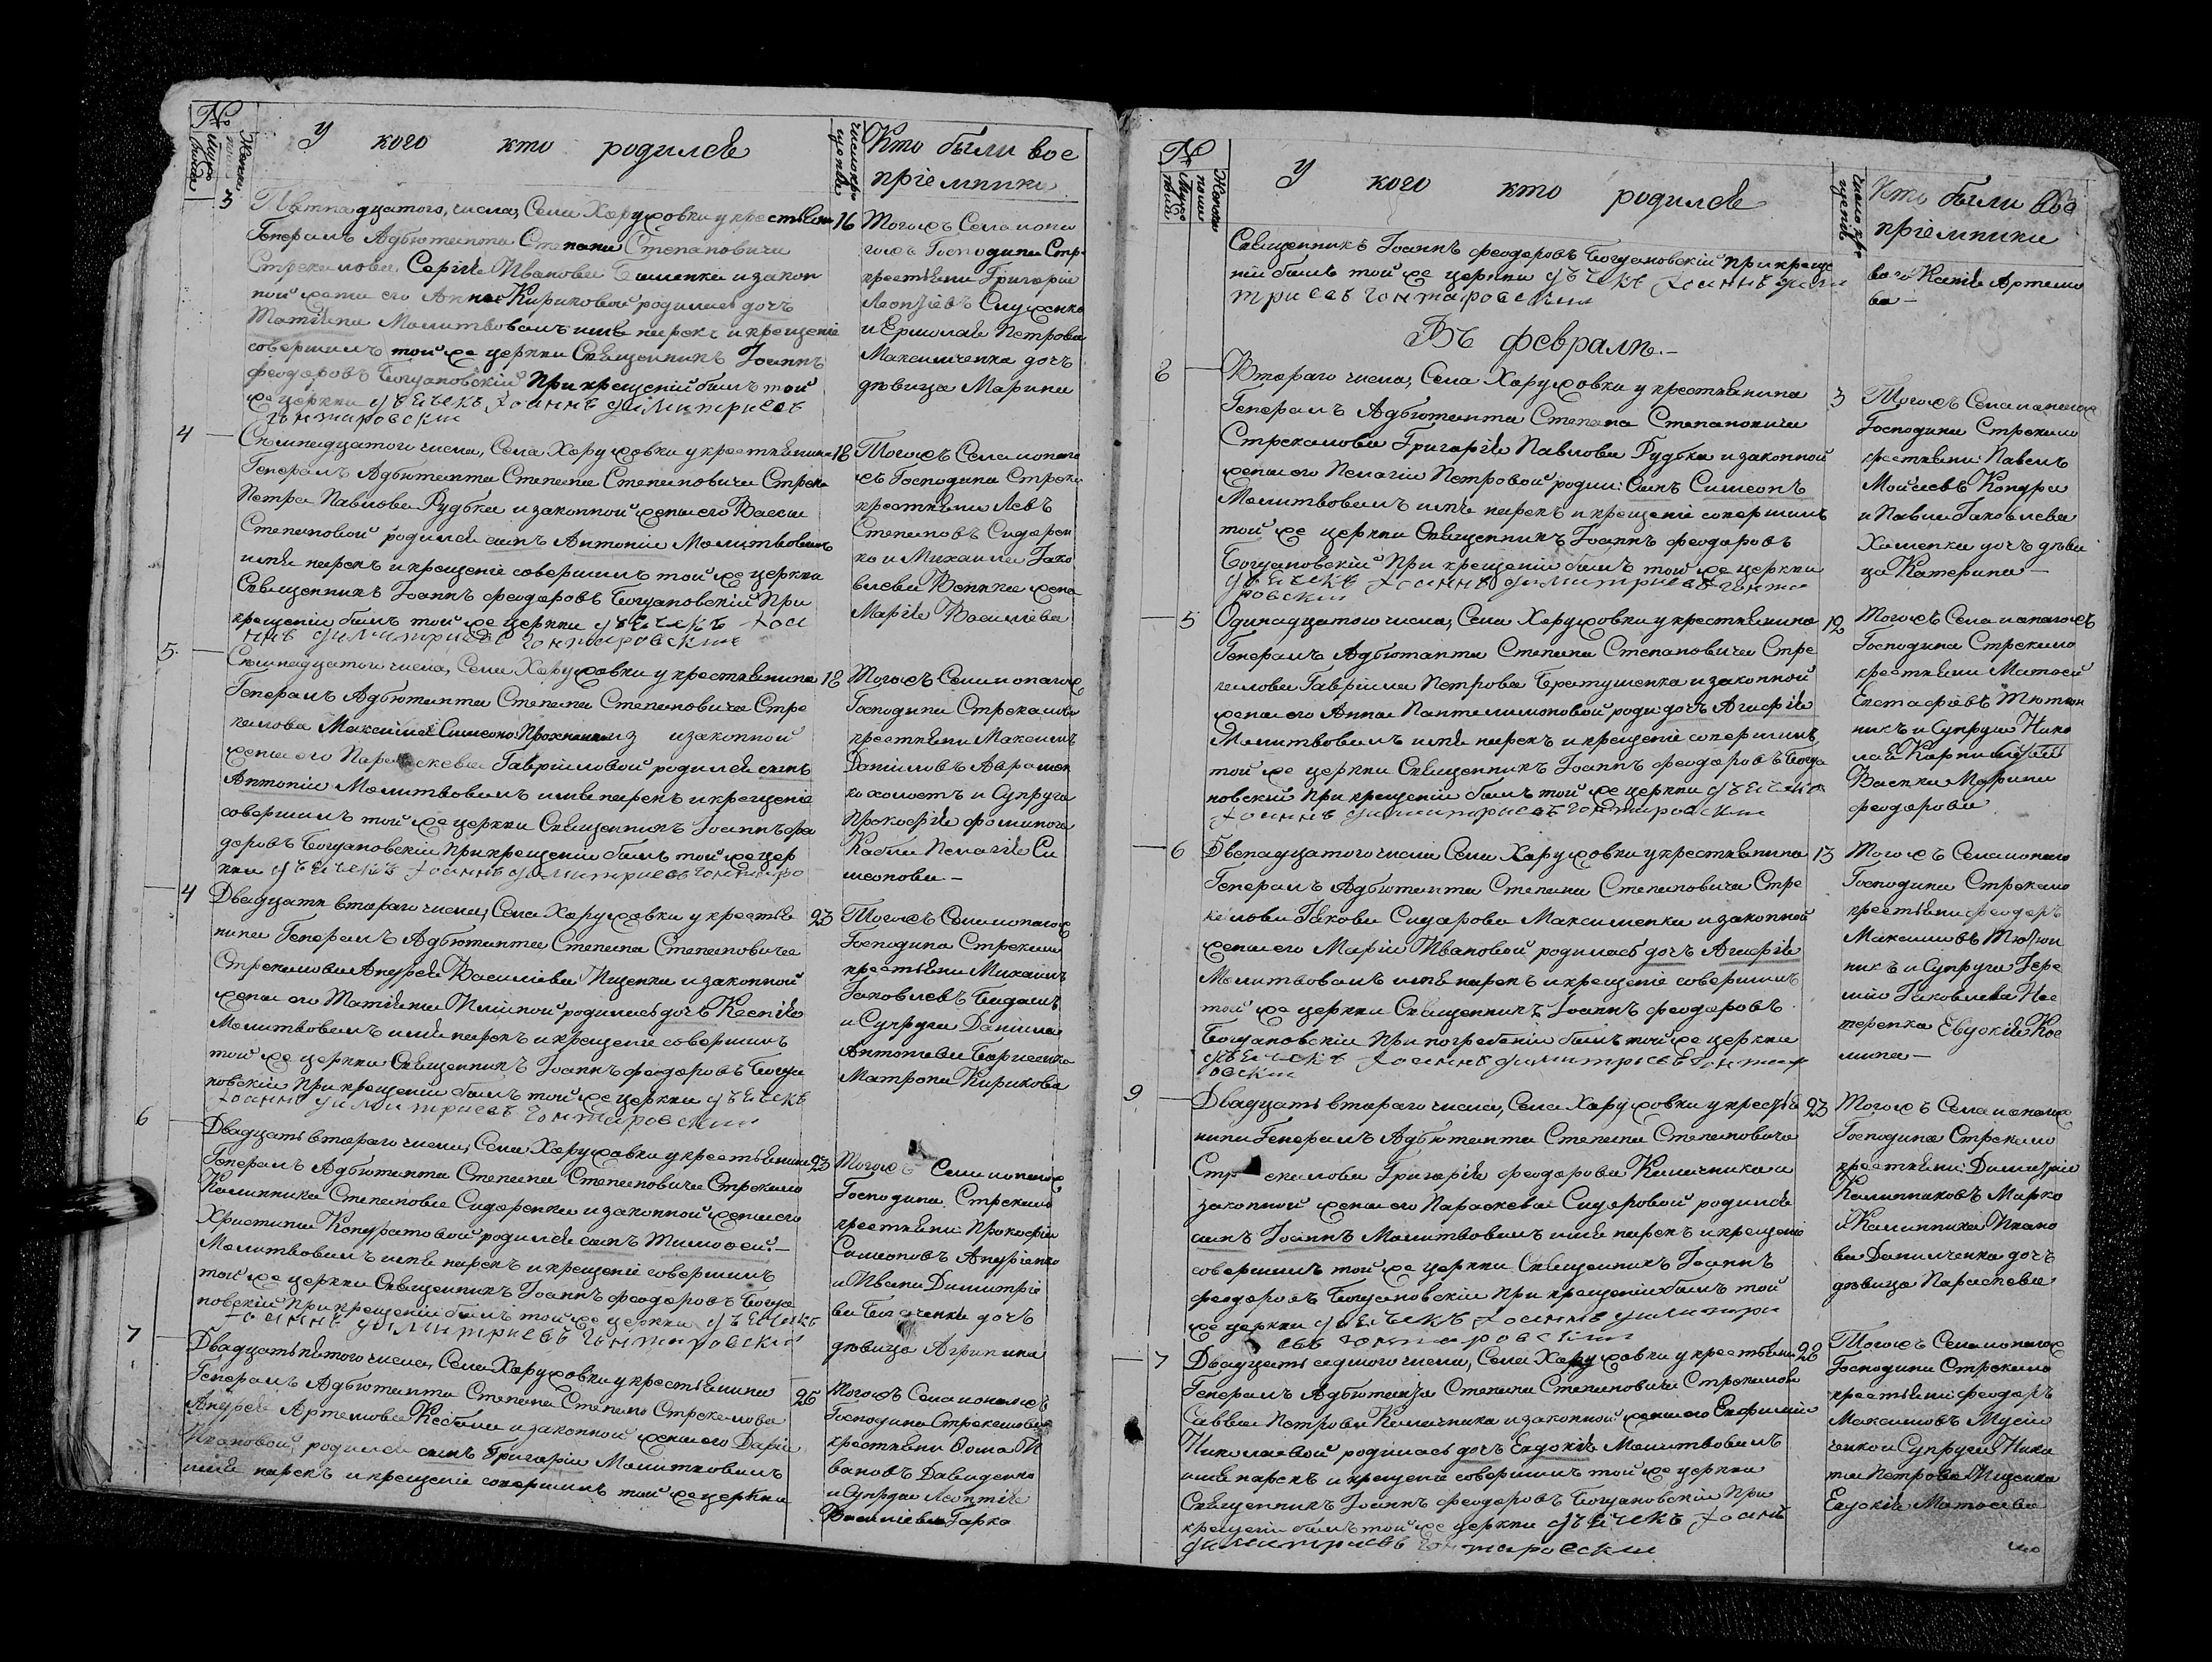 №
мужеска пола
Женска пола
У кого кто родился
число крещенія
Кто были вос
пріемники
3
Пятнадцатого, числа, Села Харуховки у крестьян
Генералъ Адьютанта Степана Степановича
Стрекалова Сергія Иванова изакон
ной жены его Анны Кириковой родилась дочь
Татіана Молитвовалъ имя нарекъ и крещеніе
совершилъ той же церкви Священникъ Іоаннъ
феодоровъ Богдановскій При крещеніи былъ той
же церкви дьячекъ Іоаннъ Димитріевъ
Гонтаровскій
16
Тогожъ Села и она
гожъ Господина Стр-
крестьяни Григорій
Леонтіевъ
и Ермолая Петрова
Максименка дочь
дѣвица Марина
4
Семнадцатого числа, Села Харуховки у крестьянина
Генералъ Адьютанта Степана Степановича Стрека
Петра Павлова Рудька и законной жены его Вассы
Степановой родился сынъ Антоній Молитвовалъ
имя нарекъ и крещеніе совершилъ той же церкви
Священникъ Іоаннъ феодоровъ Богдановскій При
крещеніи былъ той же церкви дьячекъ Іоа
ннъ Димитріевъ Гонтаровскій
18
Тогожъ Села и онаго
жъ Господина Стрека
крестьяни Левъ
Степановъ Сидорен
ко и Михаила Яко
влева жена
Марія Василіева
5.
Семнадцатого числа, Села Харуховки у крестьянина
Генералъ Адьютанта Степана Степановича Стре
калова Максима Симеоно изаконной
жены его Параскевы Гавріиловой родился сынъ
Антоній Молитвовалъ имя нарекъ и крещеніе
совершилъ той же церкви Священникъ Іоаннъ фео
доровъ Богдановскій При крещеніи былъ той же цер
кви дьячекъ Іоаннъ Димитріевъ Гонтаро
18
Тогожъ Села и онагож
Господина Стрекалова
крестьяни Максимъ
Даніиловъ Аврамен
ко холостъ и Супруга
Прокофія фоминого
Кабки Пелагія Си
меонова –
4
Двадцать втараго числа, Села Харуховки у крестья
нина Генералъ Адьютанта Степана Степановича
Стрекалова Андрея Василіева Ищенка и законной
жены его Татіаны Ильиной родилась дочь Ксенія
Молитвовалъ имя нарекъ и крещеніе совершилъ
той же церкви Священникъ Іоаннъ феодоровъ Богда
новскій При крещеніи былъ той же церкви дьячекъ
Іоаннъ Димитріевъ Гонтаровскій
23
Тогожъ Села и онагож
Господина Стрекало
крестьяни Михаилъ
Яковлевъ
и Супруга Даніила
Антонова Борисенка
Матрона Кирикова
6
Двадцать втараго числа, Села Харуховки у крестьянина
Генералъ Адьютанта Степана Степановича Стрекало
Калинника Степанова Сидоренка и законной жены его
Христины Кондратовой родился сынъ Тимофей. –
Молитвовалъ имя нарекъ и крещеніе совершилъ
той же церкви Священникъ Іоаннъ феодоровъ Богда
новскій При крещеніи былъ той же церкви дьячекъ
Іоаннъ Димитріевъ Гонтаровскій
23
Тогожъ Села и онагож
Господина Стрекало
крестьяни: Прокофій
Симеоновъ Андріенко
и Ивана Димитріе
ва дочь
дѣвица Агрипина
7
Двадцать пятого числа, Села Харуховки у крестьянина
Генералъ Адьютанта Степана Степано Стрекалова
Андрея Артемова Кабки и законной жены его Даріи
Ивановой родился сынъ Григорій Молитвовалъ
имя нарекъ и крещеніе совершилъ той же церкви
26
Тогожъ Села и онагожъ
Господина Стрекалова
крестьяни Фома И
вановъ Давиденко
и Супруга Леонтія
Василіева Гарко
№
мужеска пола
Женска пола
У кого кто родился
число крещенія
Кто были вос
пріемники
Священникъ Іоаннъ феодоровъ Богдановскій при креще
ніи былъ той же церкви дьячекъ Іоаннъ Дими
тріевъ Гонтаровскій
ваго Ксенія Артемо
ва –
Въ февралѣ. –
8
Втараго числа, Села Харуховки у крестьянина
Генералъ Адьютанта Степана Степановича
Стрекалова Григорія Павлова Рудька и законной
жены его Пелагіи Петровой роди: сынъ Симеонъ
Молитвовалъ имя нарекъ и крещеніе совершилъ
той же церкви Священникъ Іоаннъ феодоровъ
Богдановскій При крещеніи былъ той же церкви
дьячекъ Іоаннъ Димитріевъ Гонта
ровскій
3
Тогожъ Села и онагож
Господина Стрекало
крестьяни: Павелъ
Моисеевъ Кондра
и Павла Яковлева
Хоменка дочь дѣви
ца Катерина –
5
Одинадцатого числа, Села Харуховки у крестьянина
Генералъ Адьютанта Степана Степановича Стре
калова Гавріила Петрова и законной
жены его Анны Пантелимоновой роди: дочь Агафія
Молитвовалъ имя нарекъ и крещеніе совершилъ
той же церкви Священникъ Іоаннъ феодоровъ Богда
новскій При крещеніи былъ той же церкви дьячекъ
Іоаннъ Димитріевъ Гонтаровскій
12
Тогожъ Села и онагожъ
Господина Стрекало
крестьяни Матфей
Евстафіевъ Тютюн
никъ и Супруга Нико
лая
Марина
феодорова
6
Двенадцатого числа Села Харуховки у крестьянина
Генералъ Адьютанта Степана Степановича Стре
калова Якова Сидорова Максименка и законной
жены его Маріи Ивановой родилась дочь Агафія
Молитвовалъ имя нарекъ и крещеніе совершилъ
той же церкви Священникъ Іоаннъ феодоровъ
Богдановскій При погребеніи былъ той же церкви
дьячекъ Іоаннъ Димитріевъ Гонтар
овскій
13
Тогожъ Села и онаго
Господина Стрекало
крестьяни феодоръ
Максимовъ Тютюн
никъ и Супруга Іере
мія Яковлева Нес
теренка Евдокія Кос
мина –
9
Двадцать втараго числа, Села Харуховки у крестья
нина Генералъ Адьютанта Степана Степановича
Стрекалова Григорія феодорова Калачника и
законной жены его Параскевы Сидоровой родился
сынъ Іоаннъ Молитвовалъ имя нарекъ и крещеніе
совершилъ той же церкви Священникъ Іоаннъ
феодоровъ Богдановскій При крещеніи былъ той
же церкви дьячекъ Іоаннъ Димитрі
евъ Гонтаровскій
23
Тогожъ Села и онагож
Господина Стрекало
крестьяни: Димитрій
Калиниковъ Марко
и Калинника Ивано
ва Данилченка дочь
дѣвица Параскева
7
Двадцать седмого числа, Села Харуховки у крестьянина
Генералъ Адьютанта Степана Степановича Стрекалов
Саввы Петрова Калачника и законной жены его Евфиміи
Николаевой родилась дочь Евдокія Молитвовалъ
имя нарекъ и крещеніе совершилъ той же церкви
Священникъ Іоаннъ феодоровъ Богдановскій При
крещеніи былъ той же церкви дьячекъ Іоаннъ
Димитріевъ Гонтаровскій
28
Тогожъ Села и онагож
Господина Стрекало
крестьяни: феодоръ
Максимовъ Мусій
ченко и Супруга Ники
ты Петрова Ищенка
Евдокія Матфеева